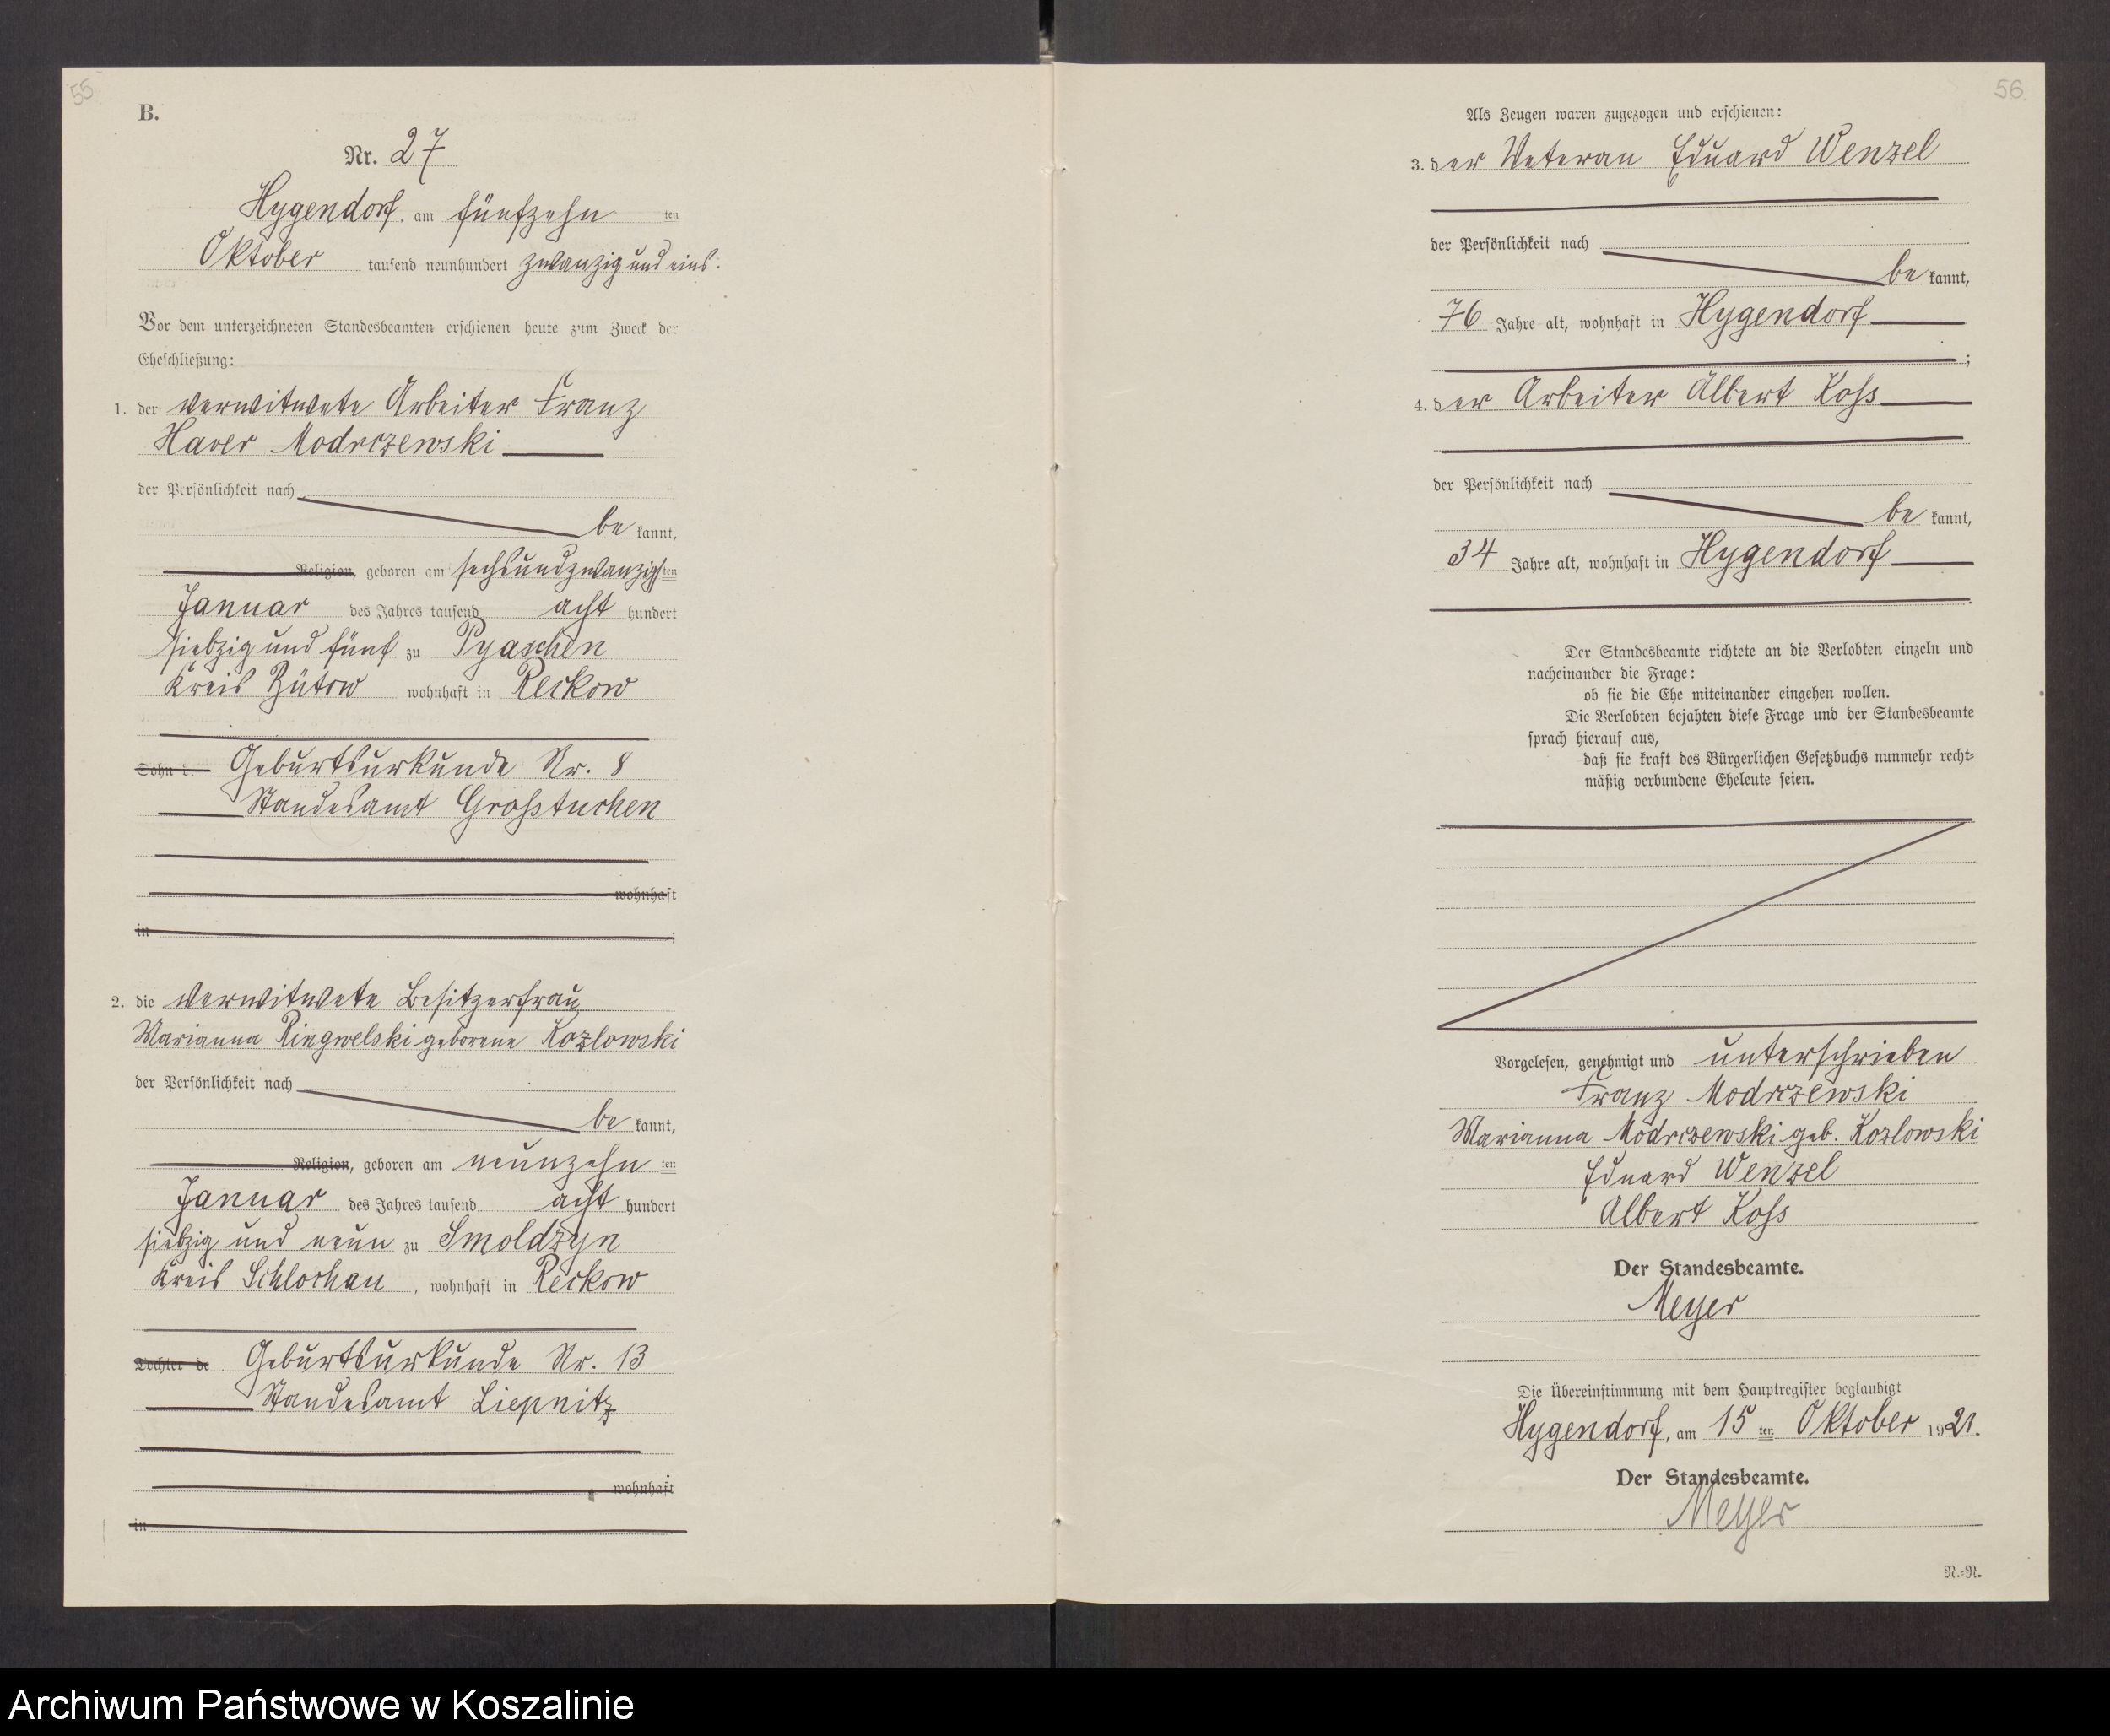 55
B.
Nr. 27
Hygendorf, am fünfzehn ten
Oktober tausend neunhundert zwanzig und eins.
Vor dem unterzeichneten Standesbeamten erschienen heute zum Zweck der
Eheschließung:
1. der verwitwete Arbeiter Franz
Xaver Modrczewski
der Persönlichkeit nach
be kannt,
Religion, geboren am sechsundzwanzigsten
Januar des Jahres tausend acht hundert
siebzig und fünf zu Pyaschen
Kreis Bütow wohnhaft in Reckow
Sohn d. Geburtsurkunde Nr. 8
Standesamt Grosstuchen
wohnhaft
in ;
2. die verwitwete Besitzerfrau
Marianna Ringwelski geborene Kozlowski
der Persönlichkeit nach
be kannt,
Religion, geboren am neunzehn ten
Januar des Jahres tausend acht hundert
siebzig und neun zu Smoldzyn
Kreis Schlochau, wohnhaft in Reckow
Tochter de Geburtsurkunde Nr. 13
Standesamt Liepnitz
wohnhaft
in
56
Als Zeugen waren zugezogen und erschienen:
3. der Veteran Eduard Wenzel
der Persönlichkeit nach
be kannt,
76 Jahre alt, wohnhaft in Hygendorf
;
4. der Arbeiter Albert Koss
der Persönlichkeit nach
be kannt,
34 Jahre alt, wohnhaft in Hygendorf
Der Standesbeamte richtete an die Verlobten einzeln und
nacheinander die Frage:
ob sie die Ehe miteinander eingehen wollen.
Die Verlobten bejahten diese Frage und der Standesbeamte
sprach hierauf aus,
daß sie kraft des Bürgerlichen Gesetzbuchs nunmehr recht-
mäßig verbundene Eheleute seien.
Vorgelesen, genehmigt und unterschrieben
Franz Modrczewski
Marianna Modrczewski geb. Kozlowski
Eduard Wenzel
Albert Koss
Der Standesbeamte.
Meyer
Die Übereinstimmung mit dem Hauptregister beglaubigt
Hygendorf, am 15 ten Oktober 1921.
Der Standesbeamte.
Meyer
N.-R.
Archiwum Państwowe w Koszalinie